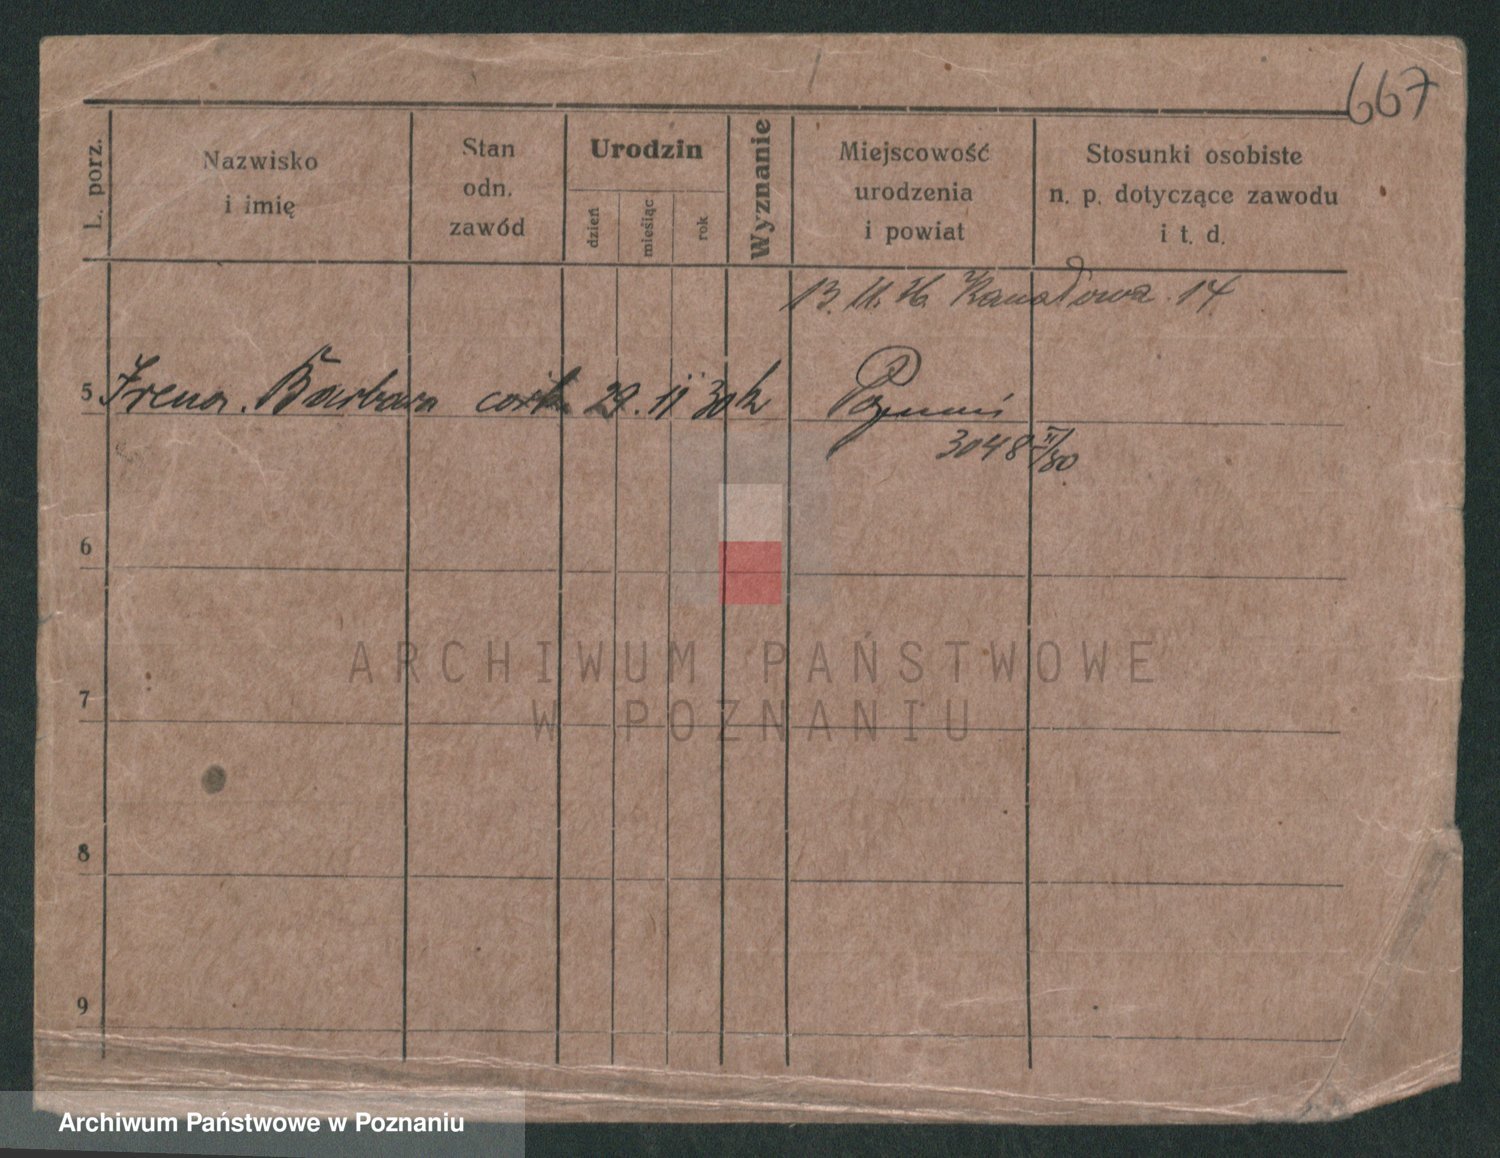 667
L. porz.
Nazwisko
i imię
Stan
odn.
zawód
Urodzin
dzień
miesiąc
rok
Wyznanie
Miejscowość
urodzenia
i powiat
Stosunki osobiste
n. p. dotyczące zawodu
i t. d.
13. 11. Kanałowa 14
5 Irena Barbara córka 29. 11 30 k Poznań
3048 II/80
6
ARCHIWUM PAŃSTWOWE
W POZNANIU
7
8
9
Archiwum Państwowe w Poznaniu